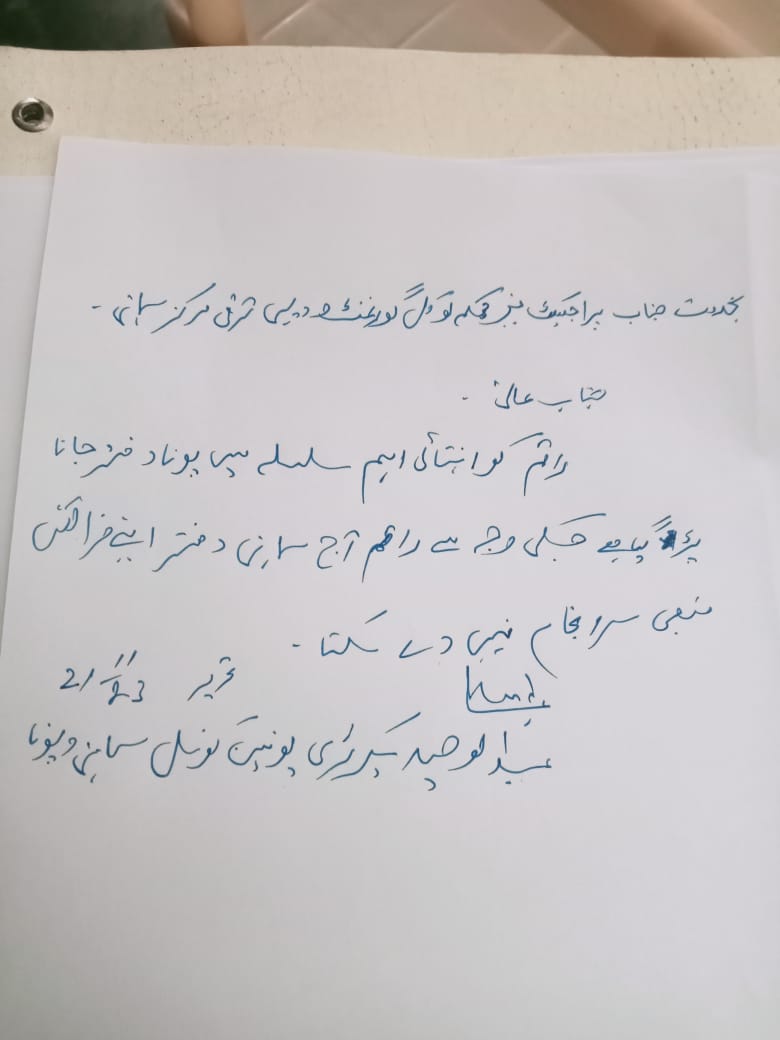 بخدمت جناب پراجیکٹ منیجر محکمہ لوکل گورنمنٹ و دیہی ترقی مرکز سماہنی -
جناب عالیٰ -
راقم کو انتہائی اہم سلسلہ میں پونا دفتر جانا
پڑ گیا ہے جسکی وجہ سے راقم آج سماہنی دفتر اپنے فرائض
منصبی سرانجام نہیں دے سکتا -
تحریر 21/11/23
عبدالوحید سیکرٹری یونین کونسل سماہنی و پونا